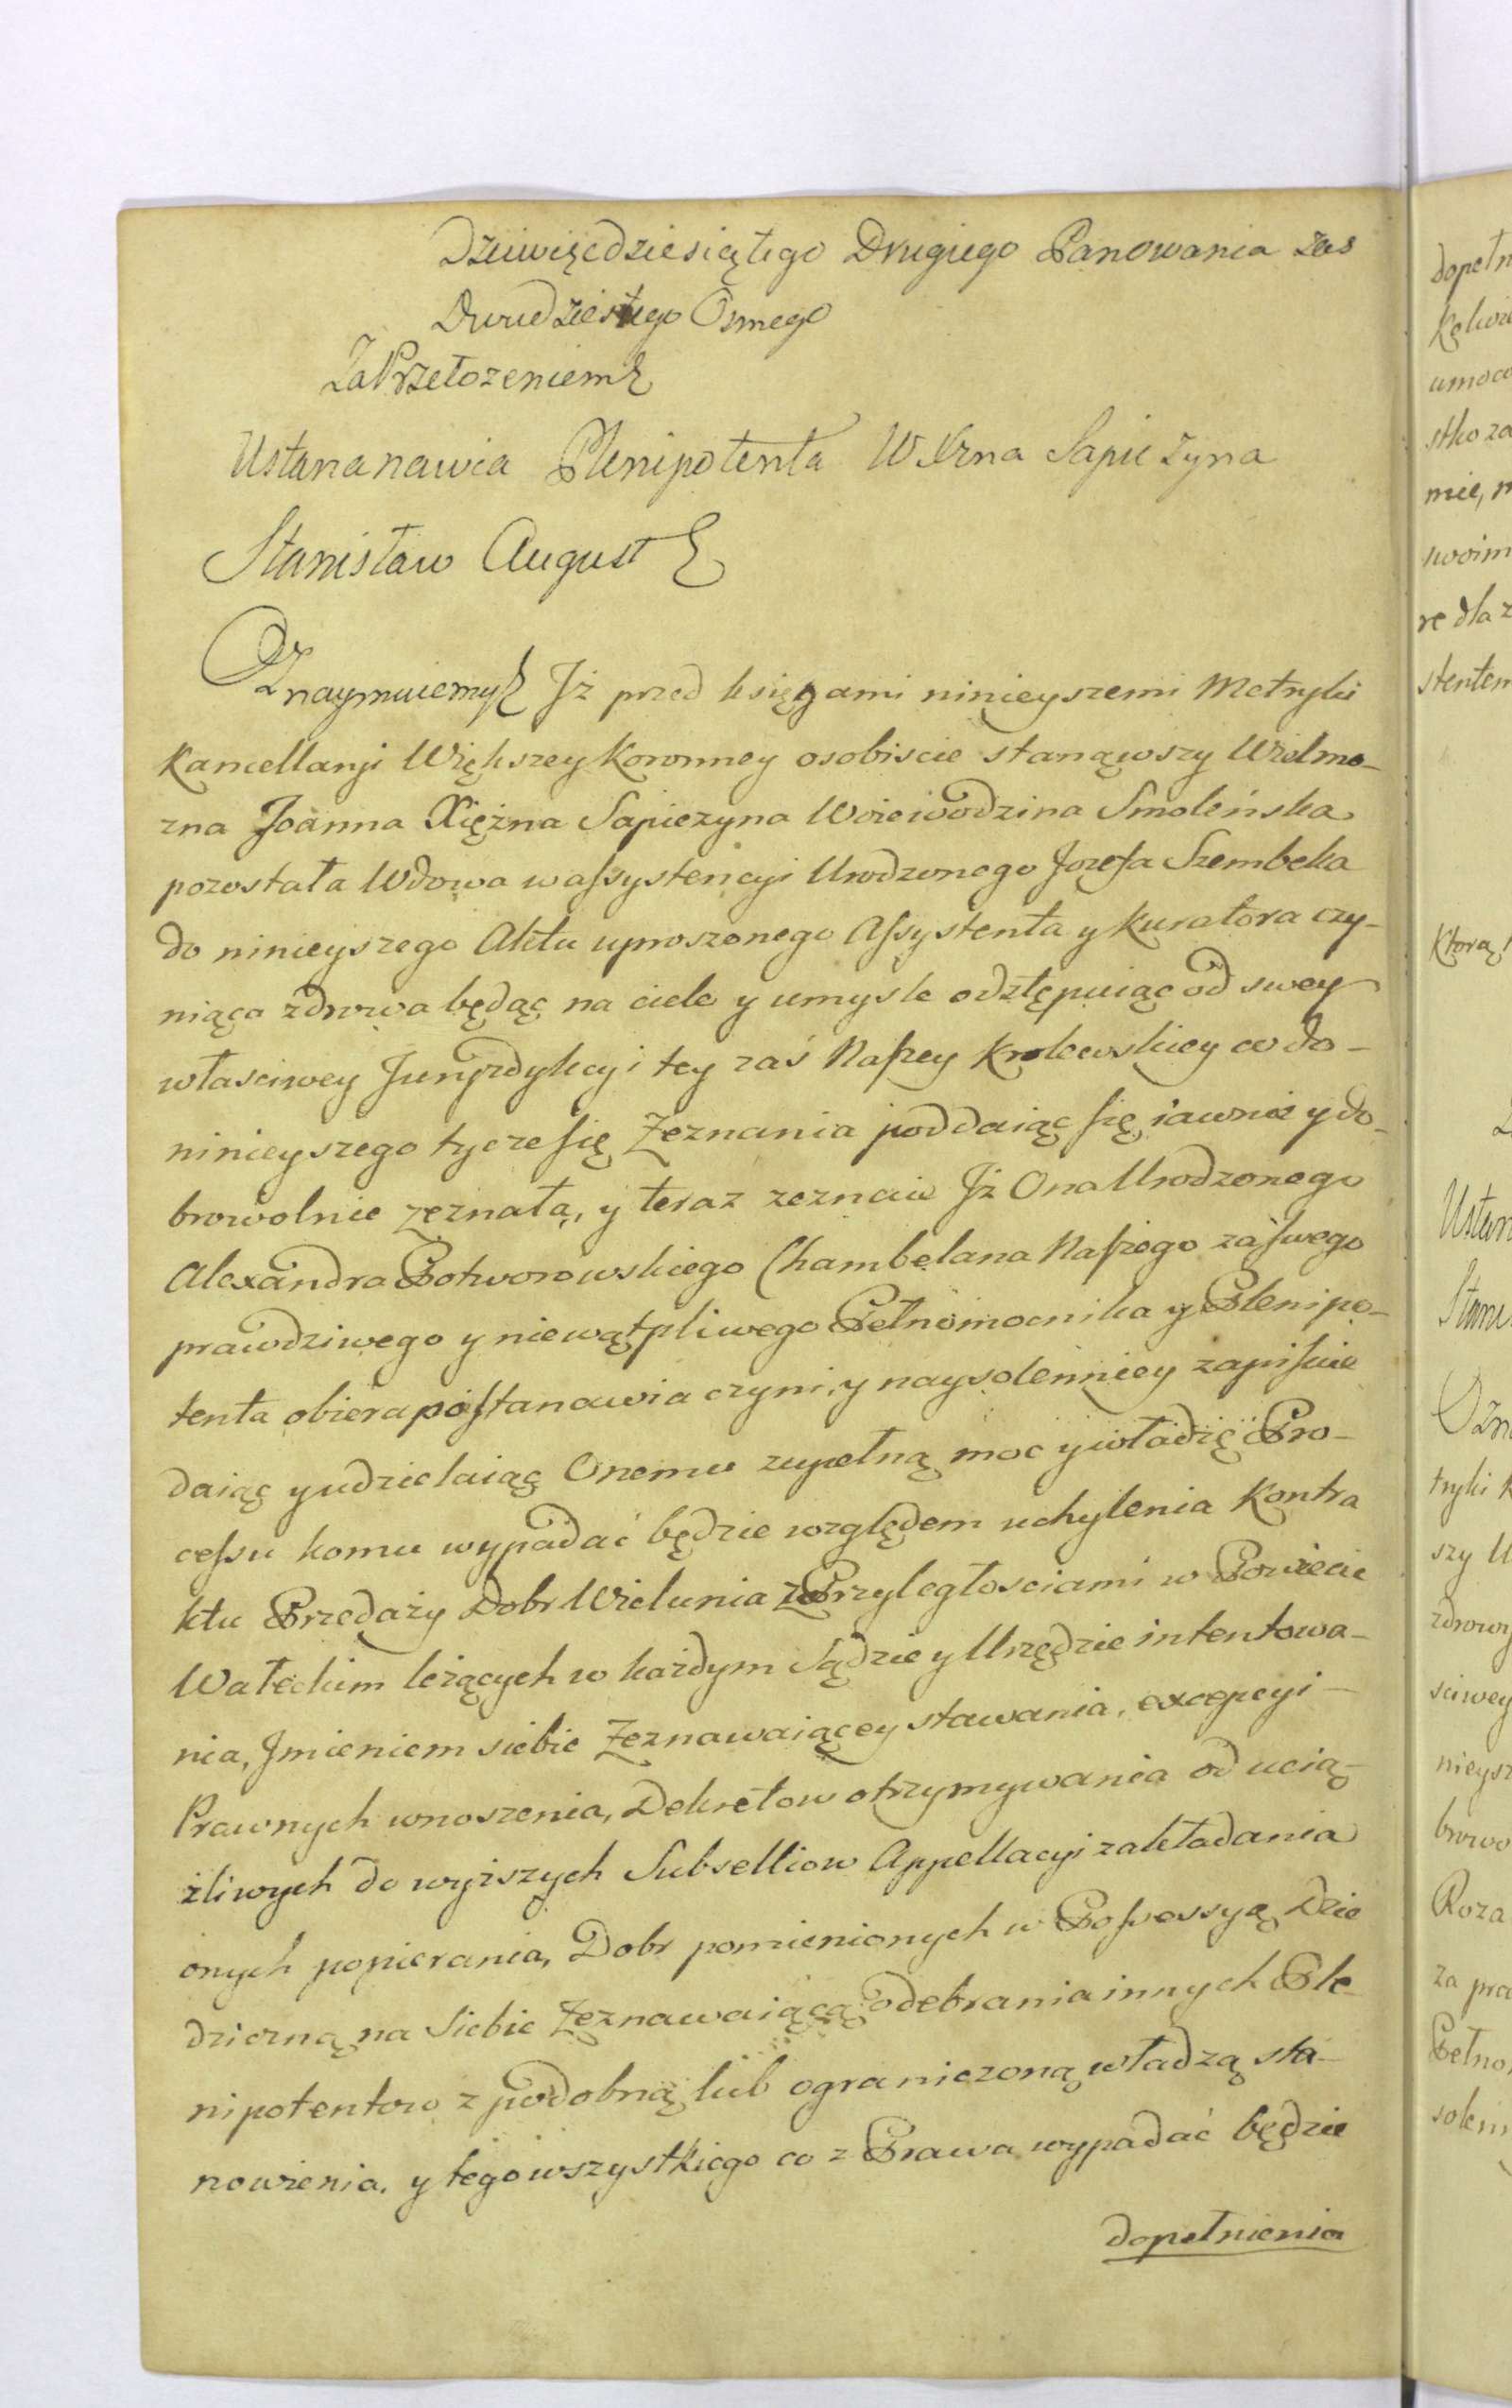 Dziewięćdziesiątego Drugiego Panowania zas
Dwudziestego Osmego
Za Przełozeniem
Ustananawia Plenipotenta W Xzna Sapieżyna
Stanisław August
Oznaymuiemy Jż przed księgami ninieyszemi Metryki
Kancellaryi Większey Koronney osobiscie stanąwszy Wielmo-
zna Joanna Xiężna Sapiezyna Woiewodzina Smoleńska
pozostała Wdowa w assystencyi Urodzonego Jozefa Szembeka
do ninieyszego Aktu uproszonego Assystenta y Kuratora czy-
niąca zdrowa będąc na ciele y umysle odztępuiąc od swey
własciwey Juryzdykcyi tey zaś Naszey Krolewskiey co do-
ninieyszego tycze się Zeznania poddaiąc się iawnie y do-
browolnie zeznała, y teraz zeznaie Jż Ona Urodzonego
Alexandra Potworowskiego Chambelana Naszego za swego
prawdziwego y niewątpliwego Pełnomocnika y Plenipo-
tenta obiera postanawia czyni, y naysolenniey zapisuie
daiąc y udzielaiąc Onemu zupełną moc y władzę Pro-
cessu komu wypadać będzie względem uchylenia Kontra
ktu Przedaży Dobr Wielunia z Przyległosciami w Powiecie
Wałeckim leżących w każdym Sądzie y Urzędzie intentowa-
nia, Jmieniem siebie Zeznawaiącey stawania, excepcyi-
Prawnych wnoszenia, Dekretow otrzymywania od ucią-
żliwych do wyższych Subselliow Appellacyi zakładania
onych popierania, Dobr pomienionych w Possessyą Dzie
dziczną na Siebie Zeznawaiącą odebrania innych Ple-
nipotentow z podobną lub ograniczoną władzą sta-
nowienia, y tego wszystkiego co z Prawa wypadać będzie
dopełnienia
dopełn
umoco
stko za
mie, m
swoim
re dla z
stentem
Którą
Ustan
Stani
Ozn
tryki K
szy U
zdrowy
sciwey
nieysz
browo
Roza
za pra
Pełno
solenn